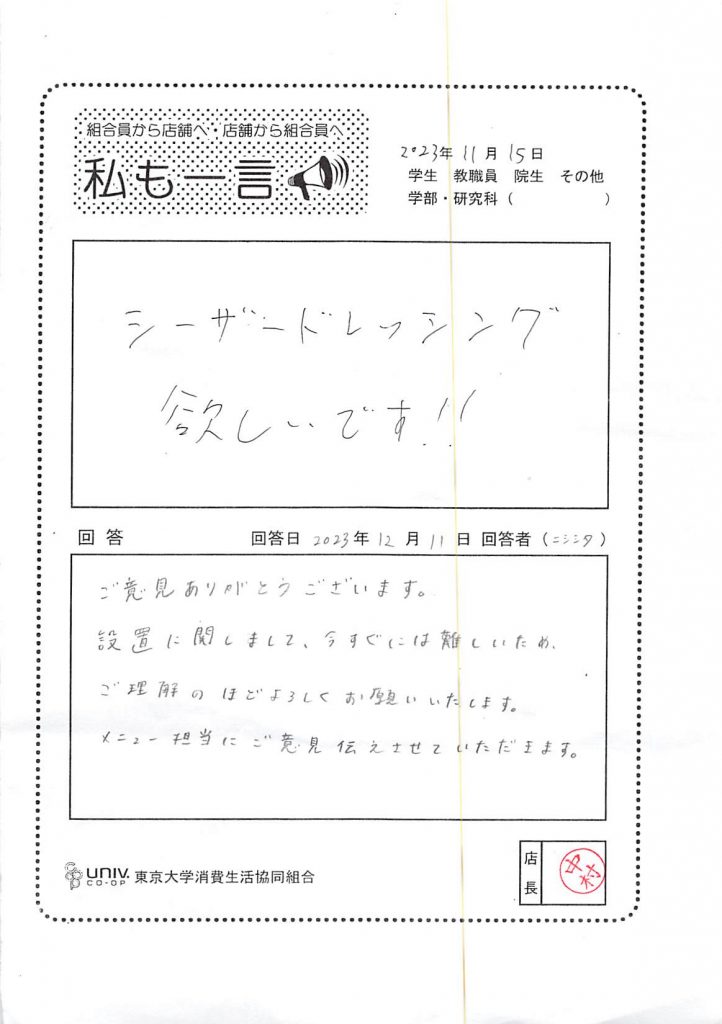 組合員から店舗へ・店舗から組合員へ
私も一言
2023年11月15日
学生 教職員 院生 その他
学部・研究科（ ）
シーザードレッシング
欲しいです!!
回答 回答日 2023年12月11日 回答者（ニシシタ）
ご意見ありがとうございます。
設置に関しまして、今すぐには難しいため、
ご理解のほどよろしくお願いいたします。
メニュー担当にご意見伝えさせていただきます。
UNIV.
CO-OP
東京大学消費生活協同組合
店長
中村